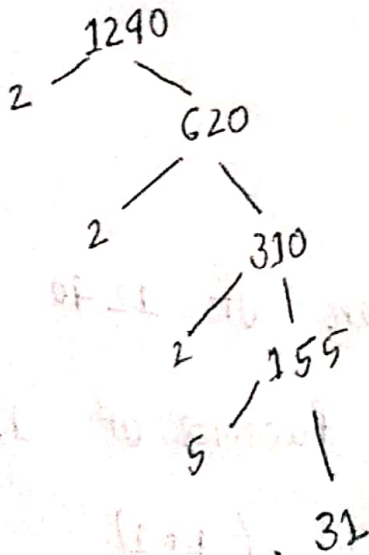 1240
2
620
2
310
2
155
5
31